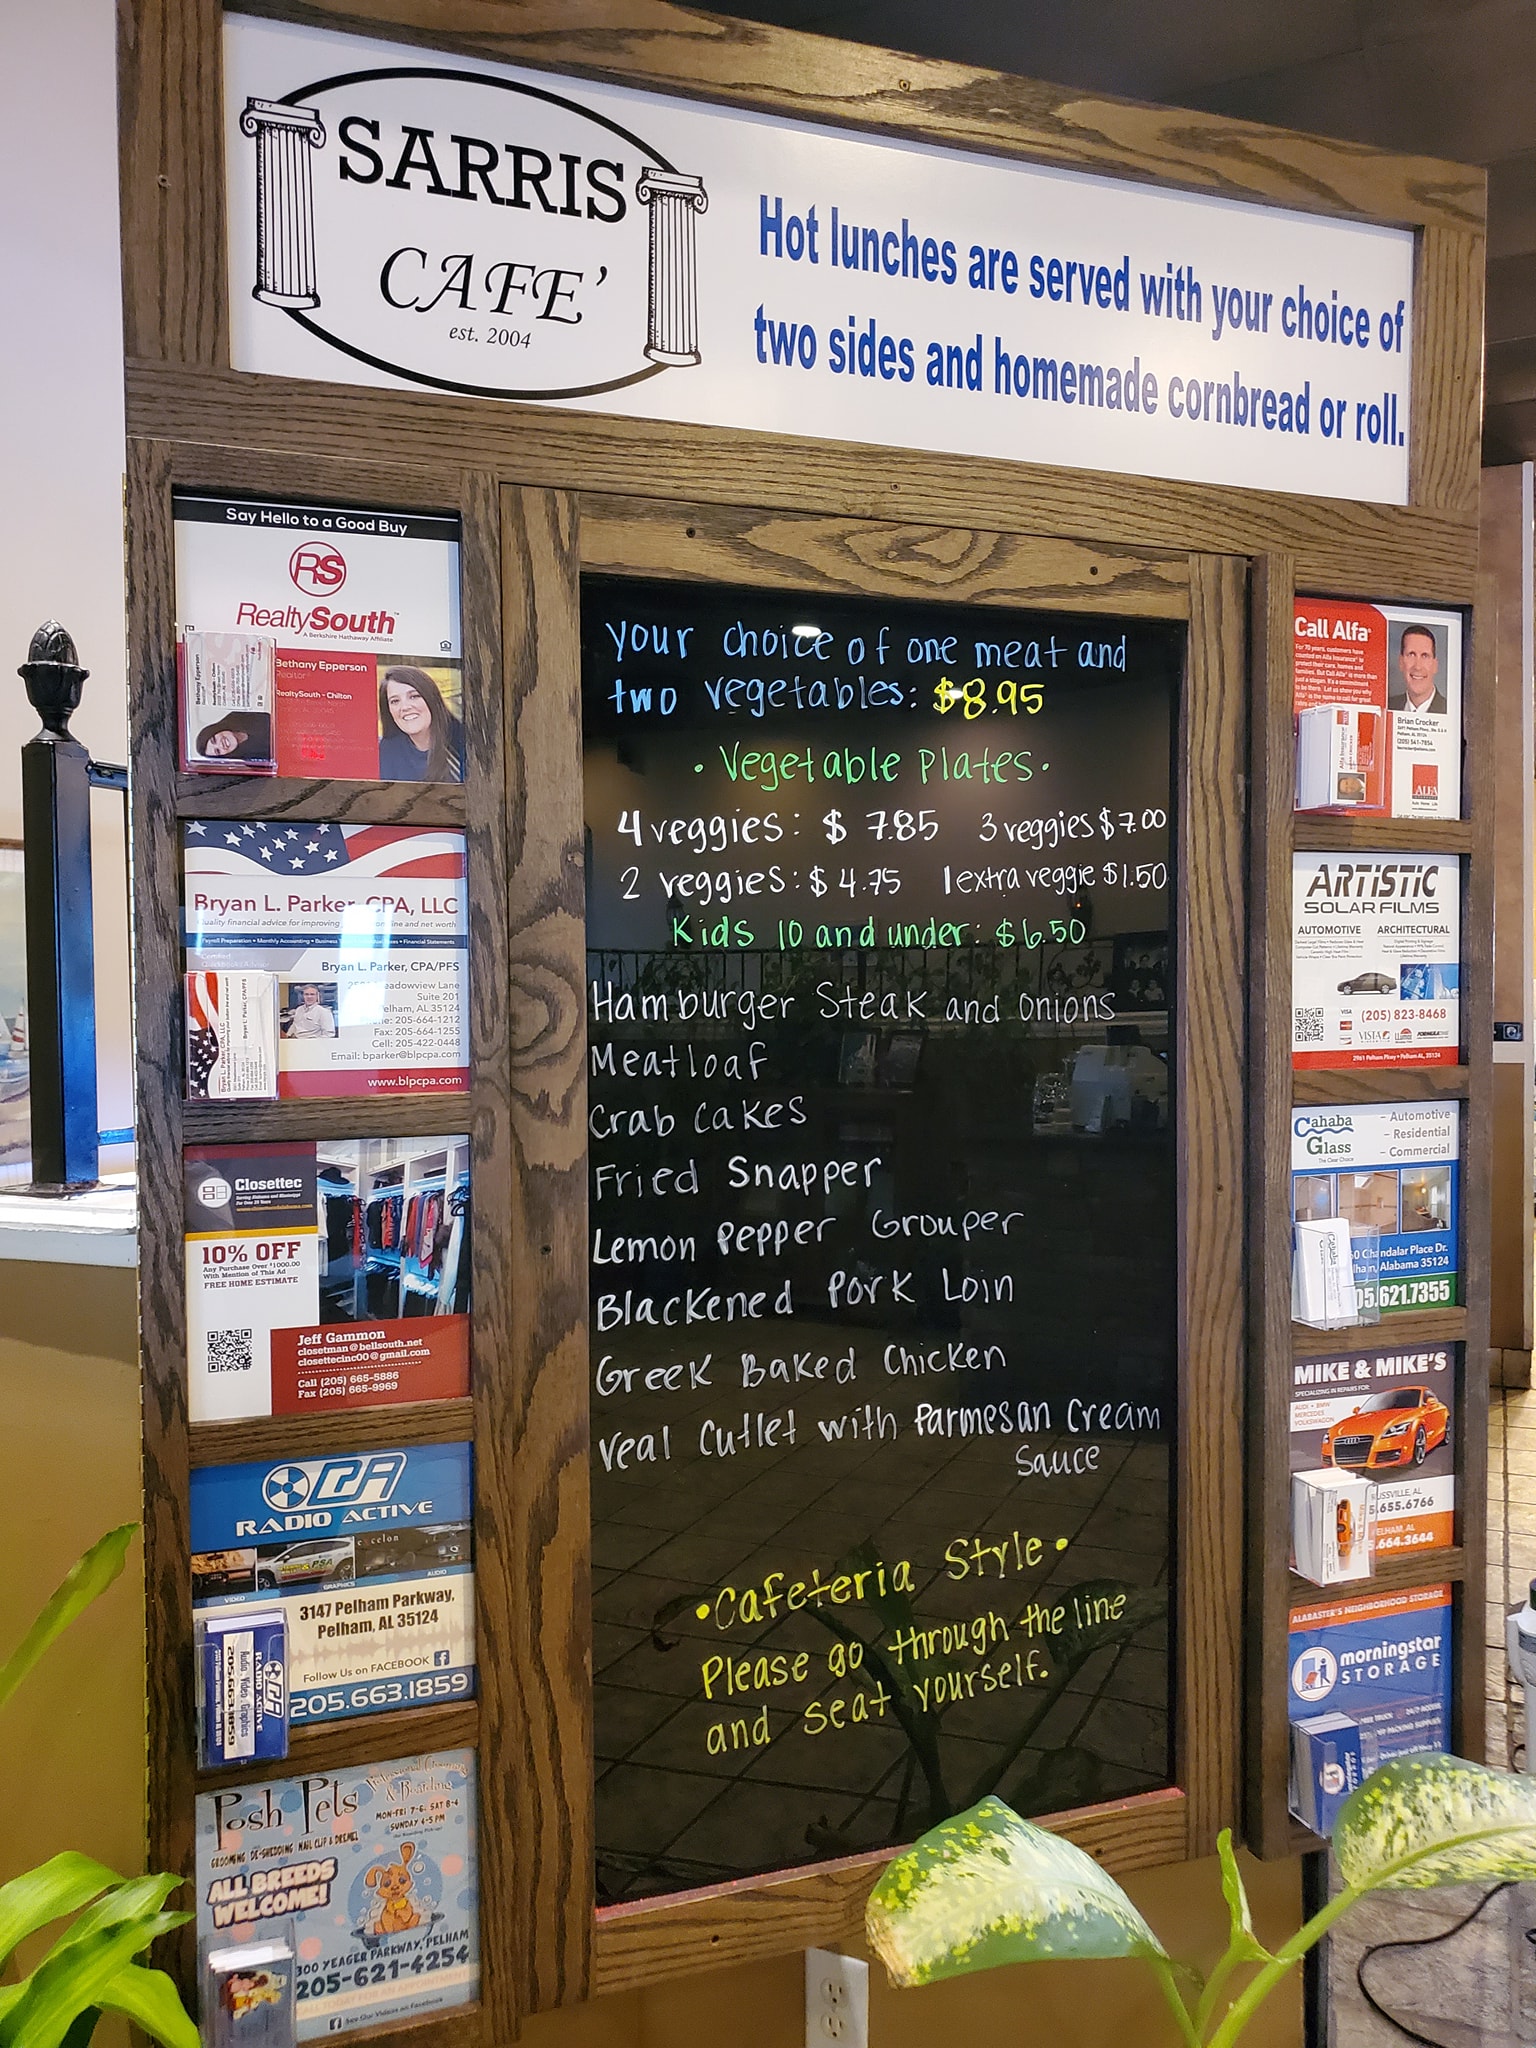 SARRIS
CAFE'
est. 2004
Hot lunches are served with your choice of
two sides and homemade cornbread or roll.
Say Hello to a Good Buy
RS
RealtySouth
A Berkshire Hathaway Affiliate
Bethany Epperson
RealtySouth - Chilton
Bryan L. Parker, CPA, LLC
Quality financial advice for improving
Payroll Preparation • Monthly Accounting • Business
• Financial Statements
Bryan L. Parker, CPA/PFS
Meadowview Lane
Suite 201
Pelham, AL 35124
205-664-1212
Fax: 205-664-1255
Cell: 205-422-0448
Email: bparker@blpcpa.com
www.blpcpa.com
Closettec
Serving Alabama and Mississippi
10% OFF
Any Purchase Over $1000.00
With Mention of This Ad
FREE HOME ESTIMATE
Jeff Gammon
closetman@bellsouth.net
closettecinc00@gmail.com
Call (205) 665-5886
Fax (205) 665-9969
RA
RADIO ACTIVE
VIDEO GRAPHICS AUDIO
3147 Pelham Parkway,
Pelham, AL 35124
Follow Us on FACEBOOK
205.663.1859
RADIO ACTIVE
Audio, Video, Graphics
205.663.1859
Posh Pets
Professional Grooming
& Boarding
MON-FRI 7-6, SAT 8-4
SUNDAY 4-5 PM
GROOMING DE-SHEDDING NAIL CLIP & DREMEL
ALL BREEDS
WELCOME!
300 YEAGER PARKWAY, PELHAM
205-621-4254
CALL TODAY FOR AN APPOINTMENT
See Our Videos on Facebook
your choice of one meat and
two vegetables: $8.95
• Vegetable Plates •
4 veggies: $ 7.85 3 veggies $7.00
2 veggies: $ 4.75 1 extra veggie $1.50
Kids 10 and under: $6.50
Hamburger Steak and onions
Meatloaf
Crab Cakes
Fried Snapper
Lemon Pepper Grouper
Blackened Pork Loin
Greek Baked Chicken
Veal Cutlet with Parmesan Cream
Sauce
• Cafeteria Style •
Please go through the line
and seat yourself.
Call Alfa
Brian Crocker
Pelham, AL 35124
(205) 541-7854
ALFA
INSURANCE
Auto Home Life
ARTISTIC
SOLAR FILMS
AUTOMOTIVE ARCHITECTURAL
VISA
(205) 823-8468
VISTA
2961 Pelham Pkwy • Pelham AL, 35124
Cahaba
Glass
The Clear Choice
– Automotive
– Residential
– Commercial
Chandalar Place Dr.
Alabama 35124
05.621.7355
MIKE & MIKE'S
SPECIALIZING IN REPAIRS FOR:
AUDI • BMW
MERCEDES
VOLKSWAGEN
.655.6766
.664.3644
ALABASTER'S NEIGHBORHOOD STORAGE
morningstar
STORAGE